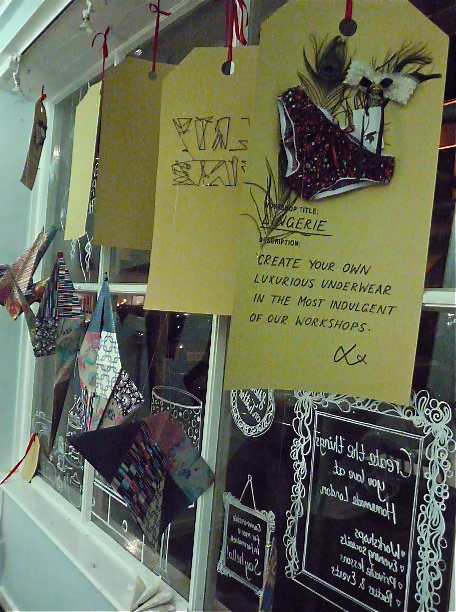 WORKSHOP TITLE:
LINGERIE
DESCRIPTION:
CREATE YOUR OWN
LUXURIOUS UNDERWEAR
IN THE MOST INDULGENT
OF OUR WORKSHOPS.
Create the things
you love at
Homemade London
Workshops
Evening Socials
Private Lessons
Parties & Events
Come in
for more
information
Say hello!